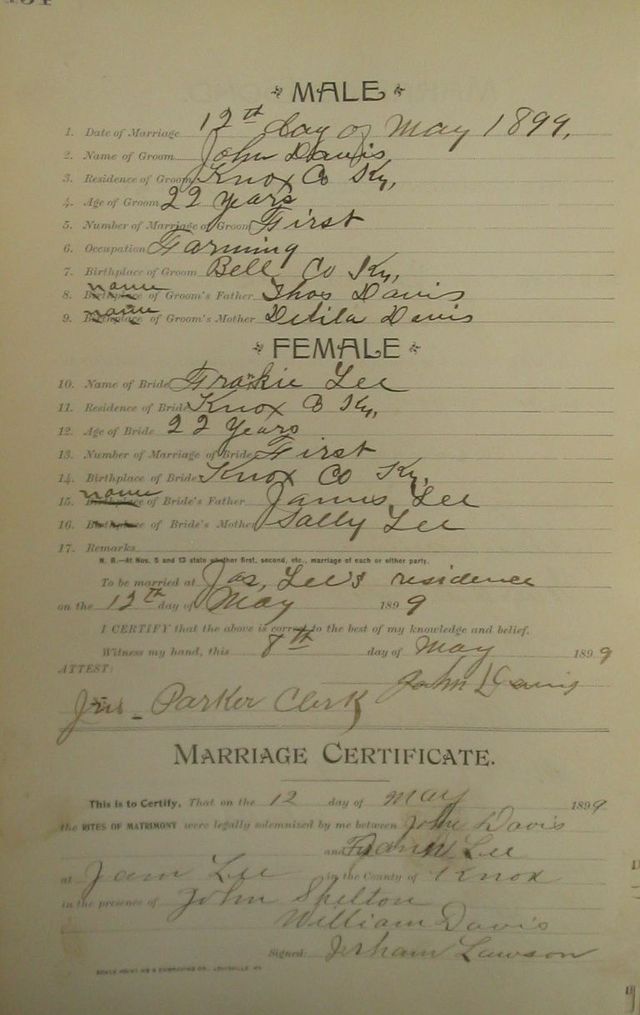 MALE
1. Date of Marriage 12th day of May 1899.
2. Name of Groom John Davis,
3. Residence of Groom Knox Co Ky,
4. Age of Groom 22 years
5. Number of Marriage of Groom First
6. Occupation Farming
7. Birthplace of Groom Bell Co Ky,
8. Birthplace name of Groom's Father Thos Davis
9. Birthplace name of Groom's Mother Delila Davis
FEMALE
10. Name of Bride Frankie Lee
11. Residence of Bride Knox Co Ky,
12. Age of Bride 22 Years
13. Number of Marriage of Bride First
14. Birthplace of Bride Knox Co Ky,
15. Birthplace name of Bride's Father James Lee
16. Birthplace of Bride's Mother Sally Lee
17. Remarks
N. B.—At Nos. 5 and 13 state whether first, second, etc., marriage of each or either party.
To be married at Jas, Lee's residence
on the 12th day of May 1899
I CERTIFY that the above is correct to the best of my knowledge and belief.
Witness my hand, this 8th day of May 1899
ATTEST: John Davis
Parker Clerk
MARRIAGE CERTIFICATE.
This is to Certify, That on the 12 day of May 1899
the RITES OF MATRIMONY were legally solemnized by me between John Davis
and Lee
at Jam Lee in the County of Knox
in the presence of John Shelton
William Davis
Signed: Lawson